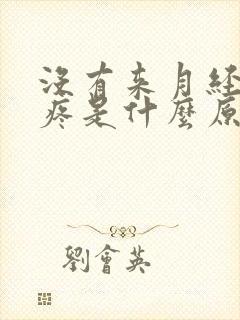 沒有来月経
疼是什麼原
劉會英